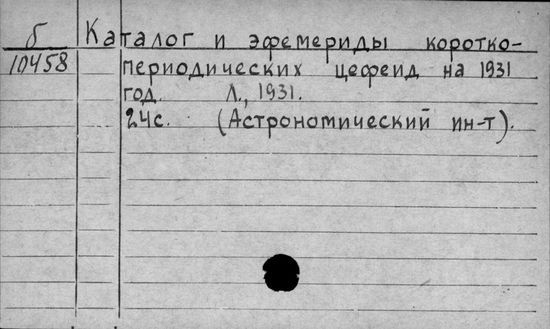 б Каталог и эфемериды коротко-
10458 периодических цефеид на 1931
год. Л., 1931.
24с. (Астрономический ин-т).